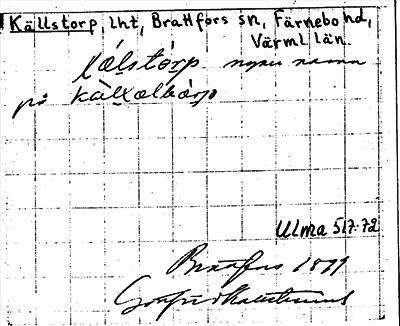 Källstorp, Lht, Brattfors sn, Färnebo hd,
Värml. län.
kálstórp nyare namn
på kàlxælbárjə
Ulma 517:72
Brattfors 1899
Gottfrid Kallstenius